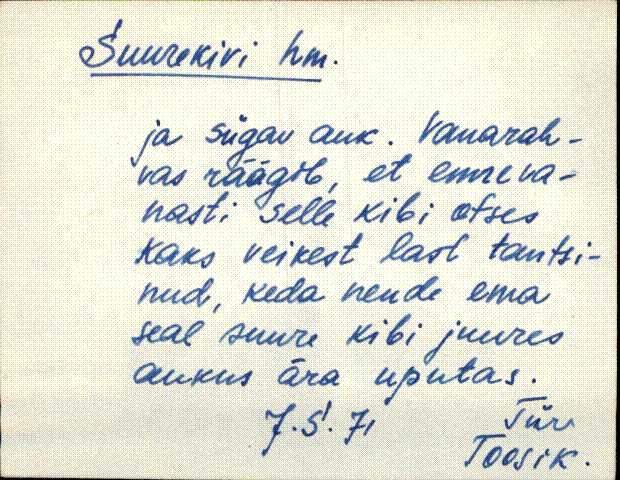 Suurekivi hm.
ja sügav auk. Vanarah-
vas räägib, et enneva-
nasti selle kibi otses
kaks veikest last tantsi-
nud, keda nende ema
seal suure kibi juures
aukus ära uputas.
7.5.71 Tür
Toosik.